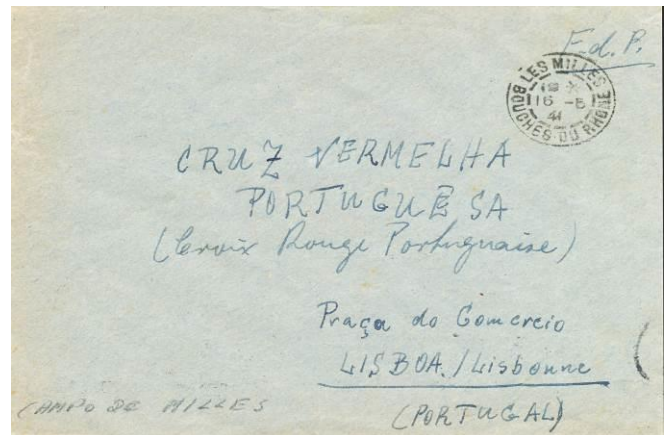 Ed. P.
LES MILLES
18 *
16 -5
41
BOUCHES DU RHONE
CRUZ VERMELHA
PORTUGUÊSA
(Croix Rouge Portugaise)
Praça do Comercio
LISBOA. / Lisbonne
(PORTUGAL)
CAMPO DE MILLES